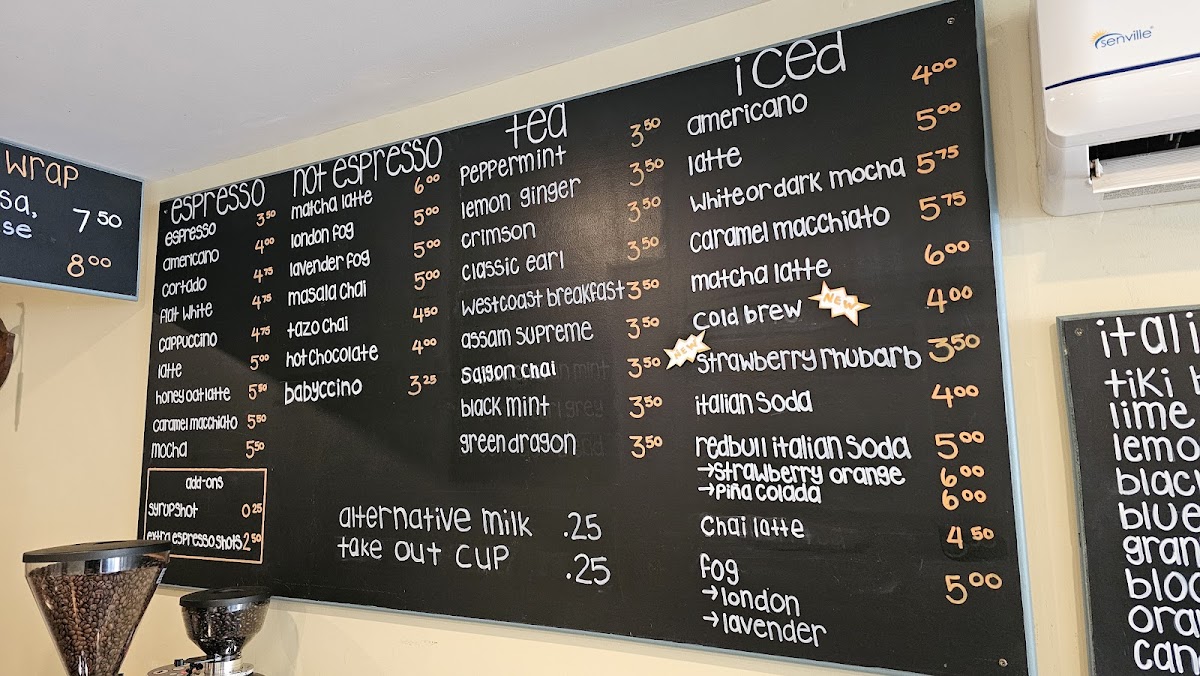 wrap
sa, 7 50
se
8 00
espresso
espresso 3 50
americano 4 00
cortado 4 75
flat white 4 75
cappuccino 4 75
latte 5 00
honey oat latte 5 50
caramel macchiato 5 50
mocha 5 50
add-ons
syrup shot 0 25
extra espresso shots 2 50
not espresso
matcha latte 6 00
london fog 5 00
lavender fog 5 00
masala chai 5 00
tazo chai 4 50
hot chocolate 4 00
babyccino 3 25
tea
peppermint 3 50
lemon ginger 3 50
crimson 3 50
classic earl 3 50
westcoast breakfast 3 50
assam supreme 3 50
saigon chai 3 50
black mint 3 50
green dragon 3 50
alternative milk .25
take out cup .25
iced
americano 4 00
latte 5 00
white or dark mocha 5 75
caramel macchiato 5 75
matcha latte 6 00
cold brew NEW 4 00
NEW strawberry rhubarb 3 50
italian soda 4 00
redbull italian soda 5 00
→strawberry orange 6 00
→piña colada 6 00
chai latte 4 50
fog 5 00
→london
→lavender
senville
itali
tiki
lime
lemo
black
blue
gran
bloo
oran
can